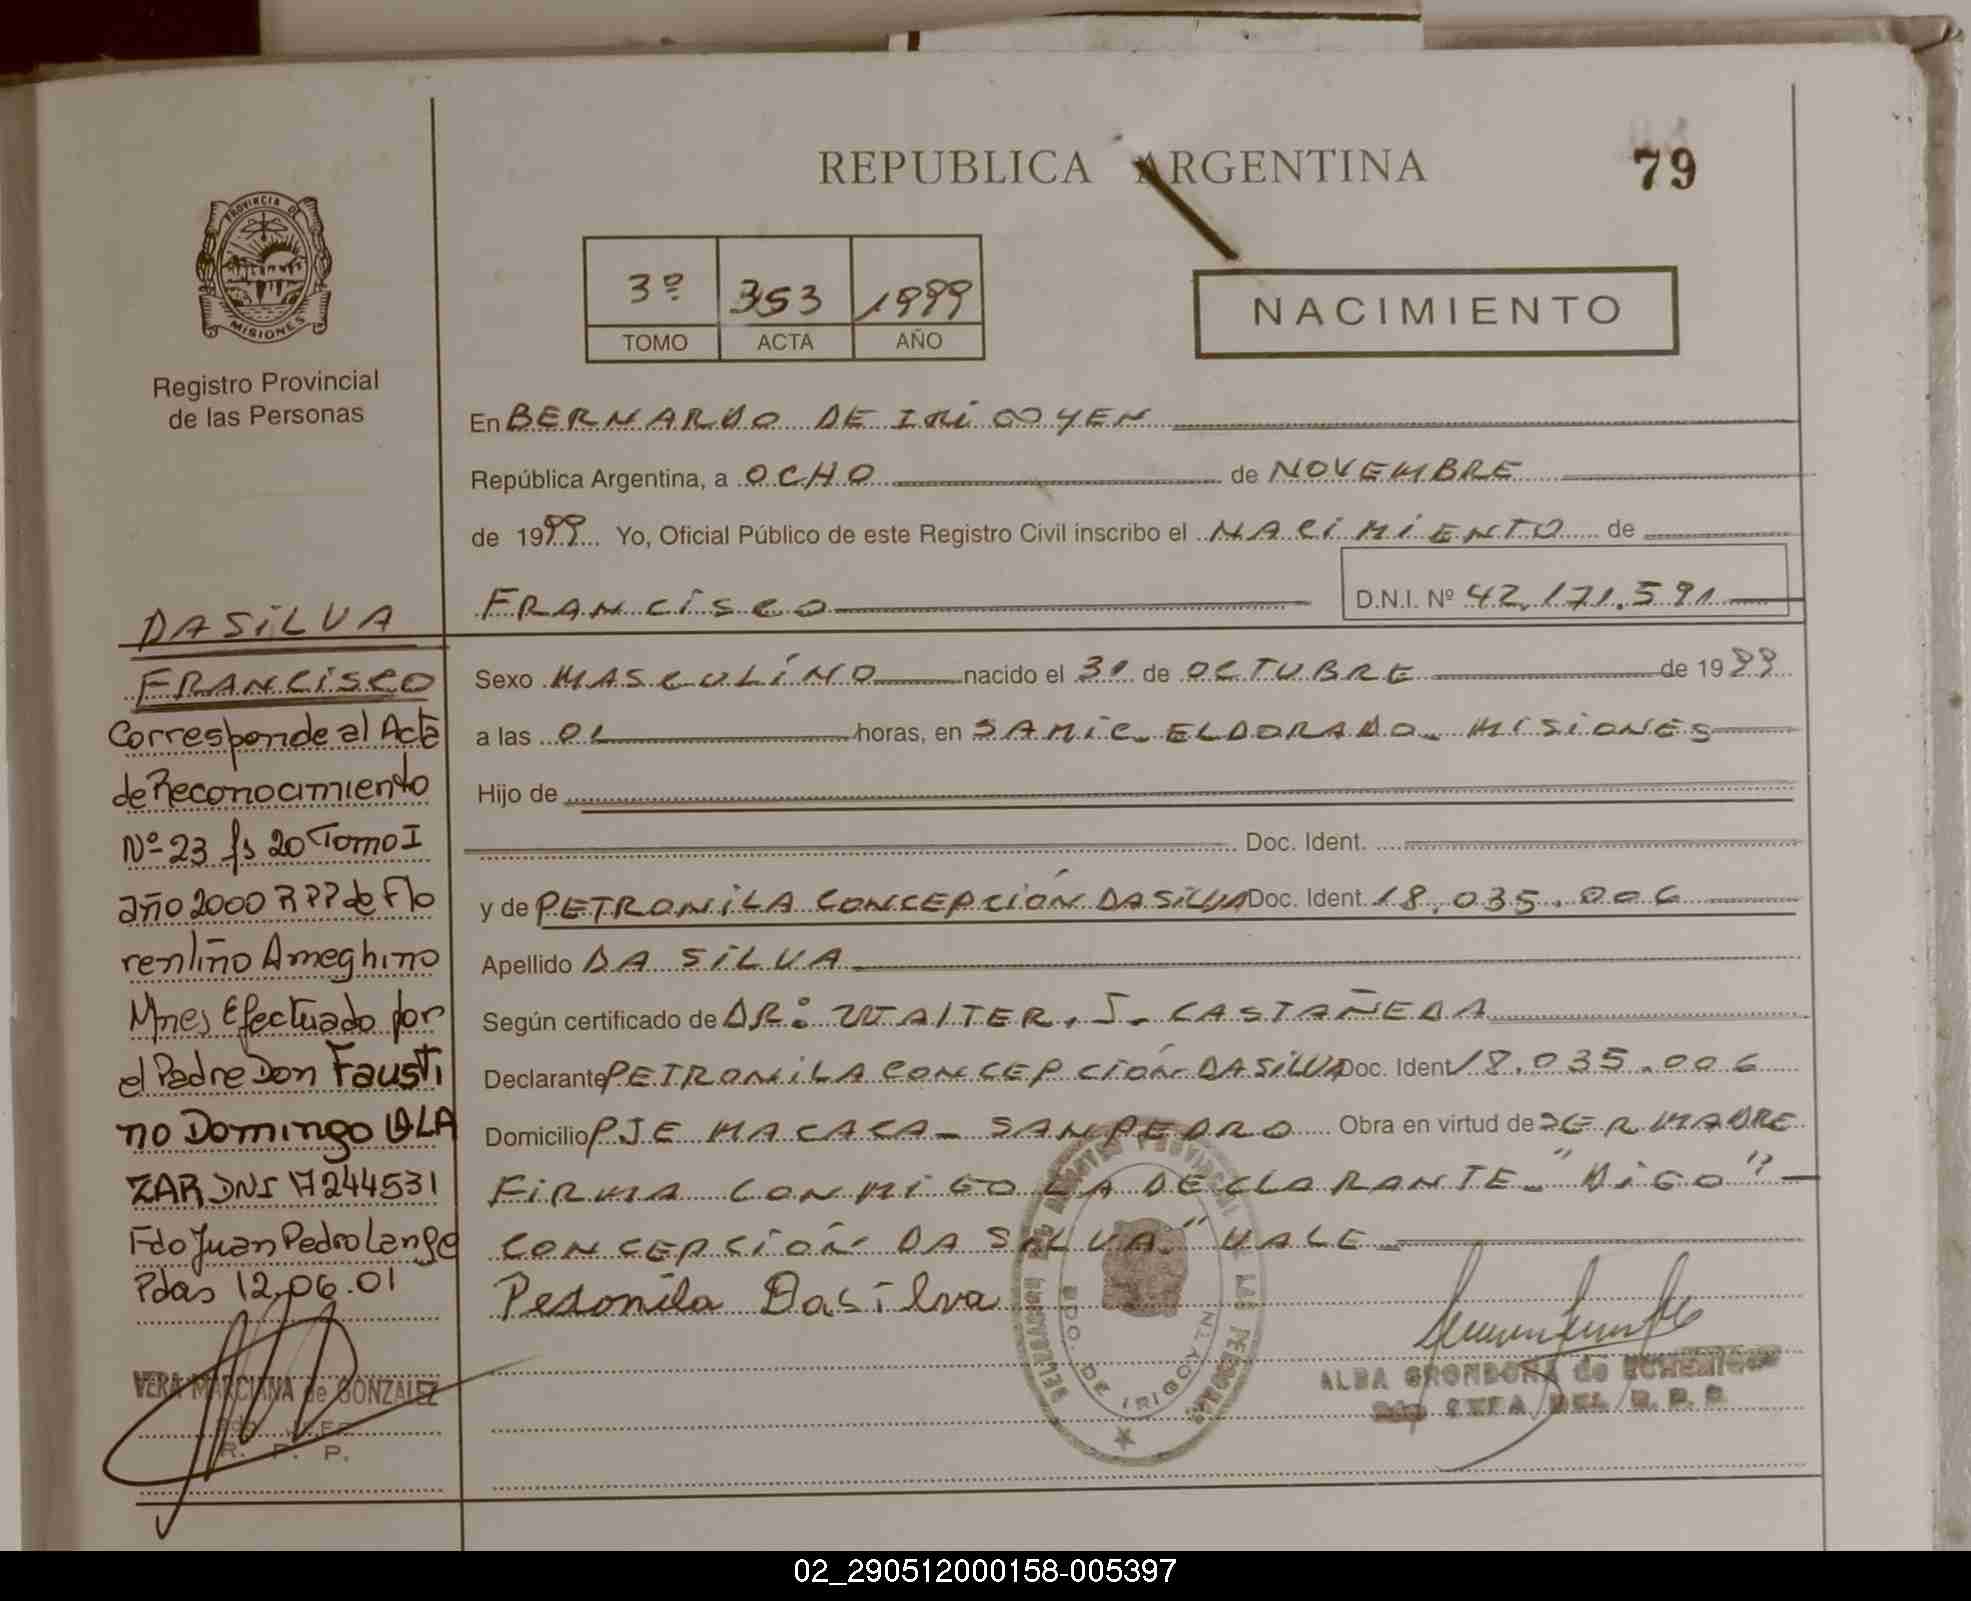 REPUBLICA ARGENTINA
79
PROVINCIA DE
MISIONES
Registro Provincial
de las Personas
3º 353 1999
TOMO ACTA AÑO
NACIMIENTO
En BERNARDO DE IRIGOYEN
República Argentina, a OCHO de NOVEMBRE
de 1999 Yo, Oficial Público de este Registro Civil inscribo el NACIMIENTO de
FRANCISCO D.N.I. Nº 42.171.591
Sexo MASCULINO nacido el 31 de OCTUBRE de 1999
a las 01 horas, en SAMIC. ELDORADO. MISIONES
Hijo de
Doc. Ident.
y de PETRONILA CONCEPCIÓN DASILVA Doc. Ident. 18.035.006
Apellido DA SILVA
Según certificado de DR: WALTER. J. CASTAÑEDA
Declarante PETRONILA CONCEPCIÓN DASILVA Doc. Ident 18.035.006
Domicilio PJE MACACA - SAN PEDRO Obra en virtud de SER MADRE
FIRMA CONMIGO LA DECLARANTE - "DIGO" -
CONCEPCIÓN DA SILVA" VALE
Pedonila Dasilva
BDO. DE IRIGOYEN
ALBA GRONDONA de
JEFA DEL R. P. P.
DASILVA
FRANCISCO
Corresponde al Acta
de Reconocimiento
Nº 23 fs 20 Tomo I
año 2000 RPP de Flo
rentino Ameghino
Mnes Efectuado por
el Padre Don Fausti
no Domingo
ZAR DNI 17244531
Fdo Juan Pedro Lange
Pdas 12.06.01
VERA MARCIANA de GONZALEZ
R. P. P.
02_290512000158-005397